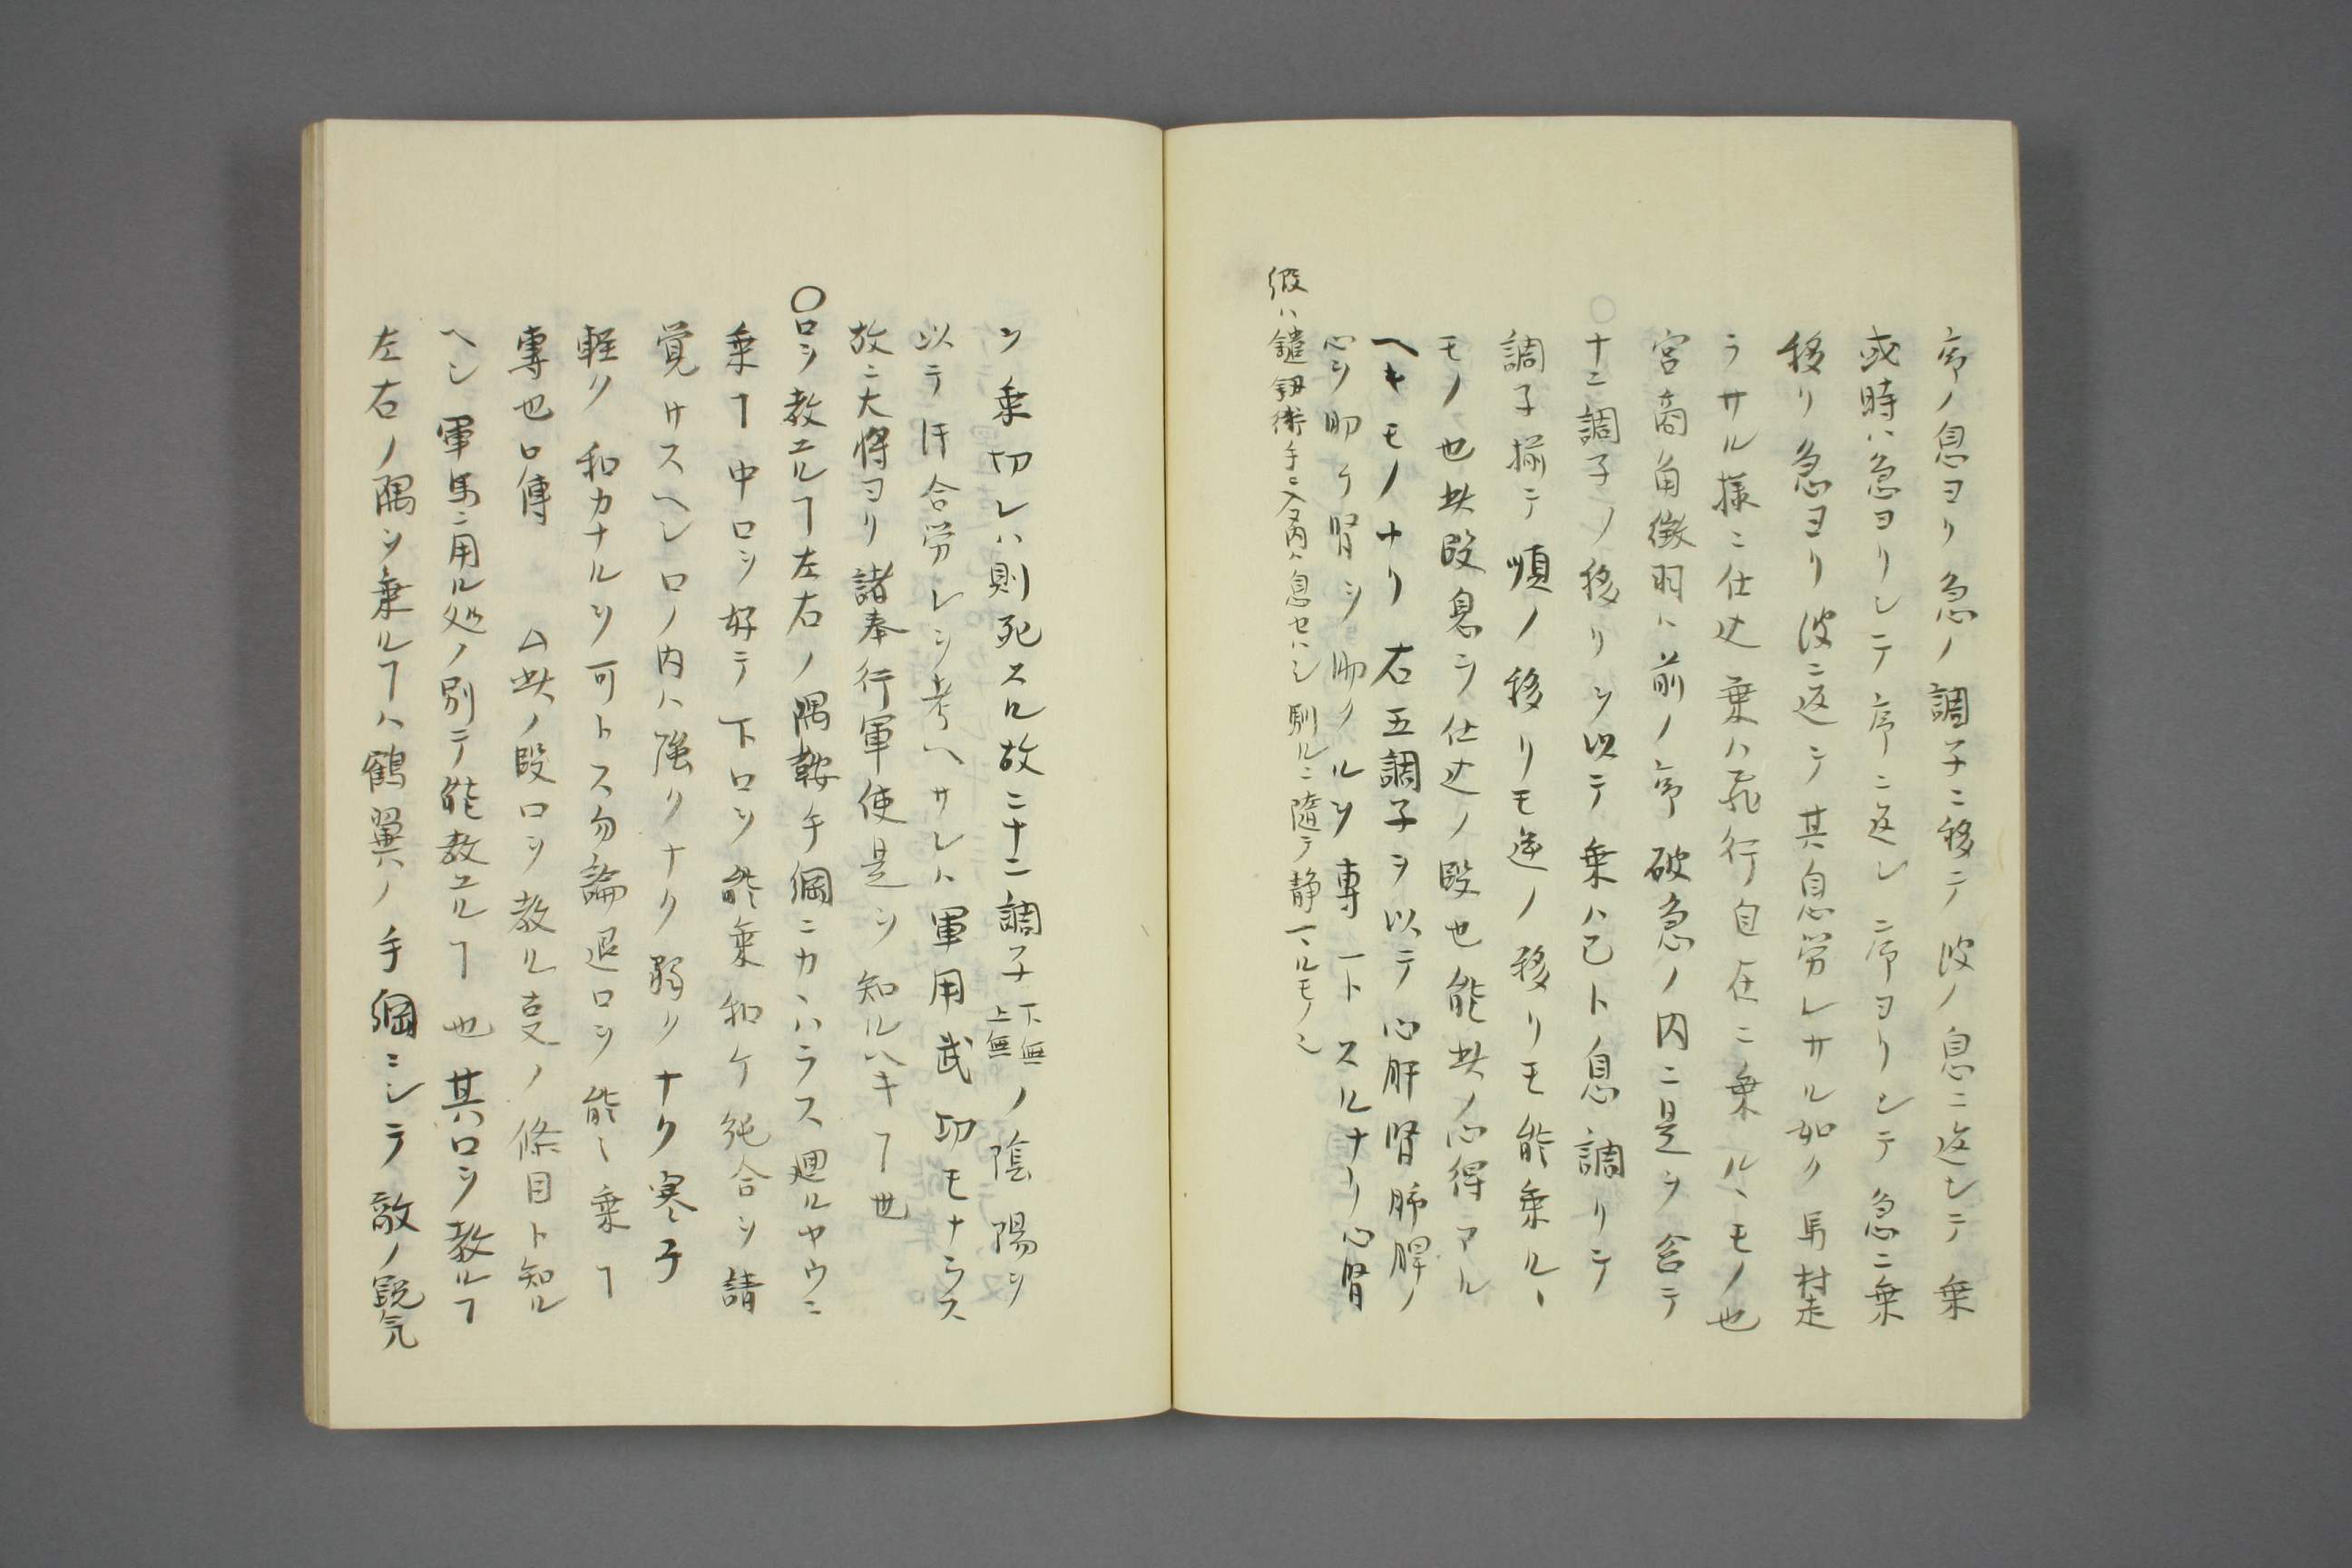 序ノ息ヨリ急ノ調子ニ移テ彼ノ息ニ返シテ乗
或時ハ急ヨリシテ序ニ返シ序ヨリシテ急ニ乗
移リ急ヨリ彼ニ返テ其息労レサル如ク馬
ラサル様ニ仕込乗ハ飛行自在ニ乗ルヽモノ也
宮商角徴羽ハ前ノ序破急ノ内ニ是ヲ含テ
十二調子ノ移リヲ以テ乗ハ己ト息調リテ
調子揃テ順ノ移リモ逆ノ移リモ能乗ルヽ
モノ也此段息ヲ仕込ノ段也能此ノ心得アル
ヘキモノナリ右五調子ヲ以テ心肝腎肺脾ノ
心ヲ助ケ腎ヲ助クルヲ専一トスルナリ心腎
假ハ鑓釼術手ニ入内ハ息セハシ馴ルニ随テ静マルモノ也
ヲ乗切レハ則死スル故ニ十二調子下無上無ノ陰陽ヲ
以テ汗合労レヲ考ヘサレハ軍用武切モナラス
故ニ大将ヨリ諸奉行軍使是ヲ知ルヘキヿ也
〇口ヲ教エルヿ左右ノ隅鞍手綱ニカヽハラス廻ルヤウニ
乗ヿ中口ヲ好テ下口ヲ能乗和ケ純合ヲ請
覚サスヘシ口ノ内ハ強クナク弱クナク寒子
軽ク和カナルヲ可トス勿論退口ヲ能々乗ヿ
専也口傳 △此ノ段口ヲ教ル事ノ條目ト知ル
ヘシ軍馬ニ用ル処ノ別テ能教エルヿ也其口ヲ教ルヿ
左右ノ隅ヲ乗ルヿハ鶴翼ノ手綱ニシテ敵ノ鋭気